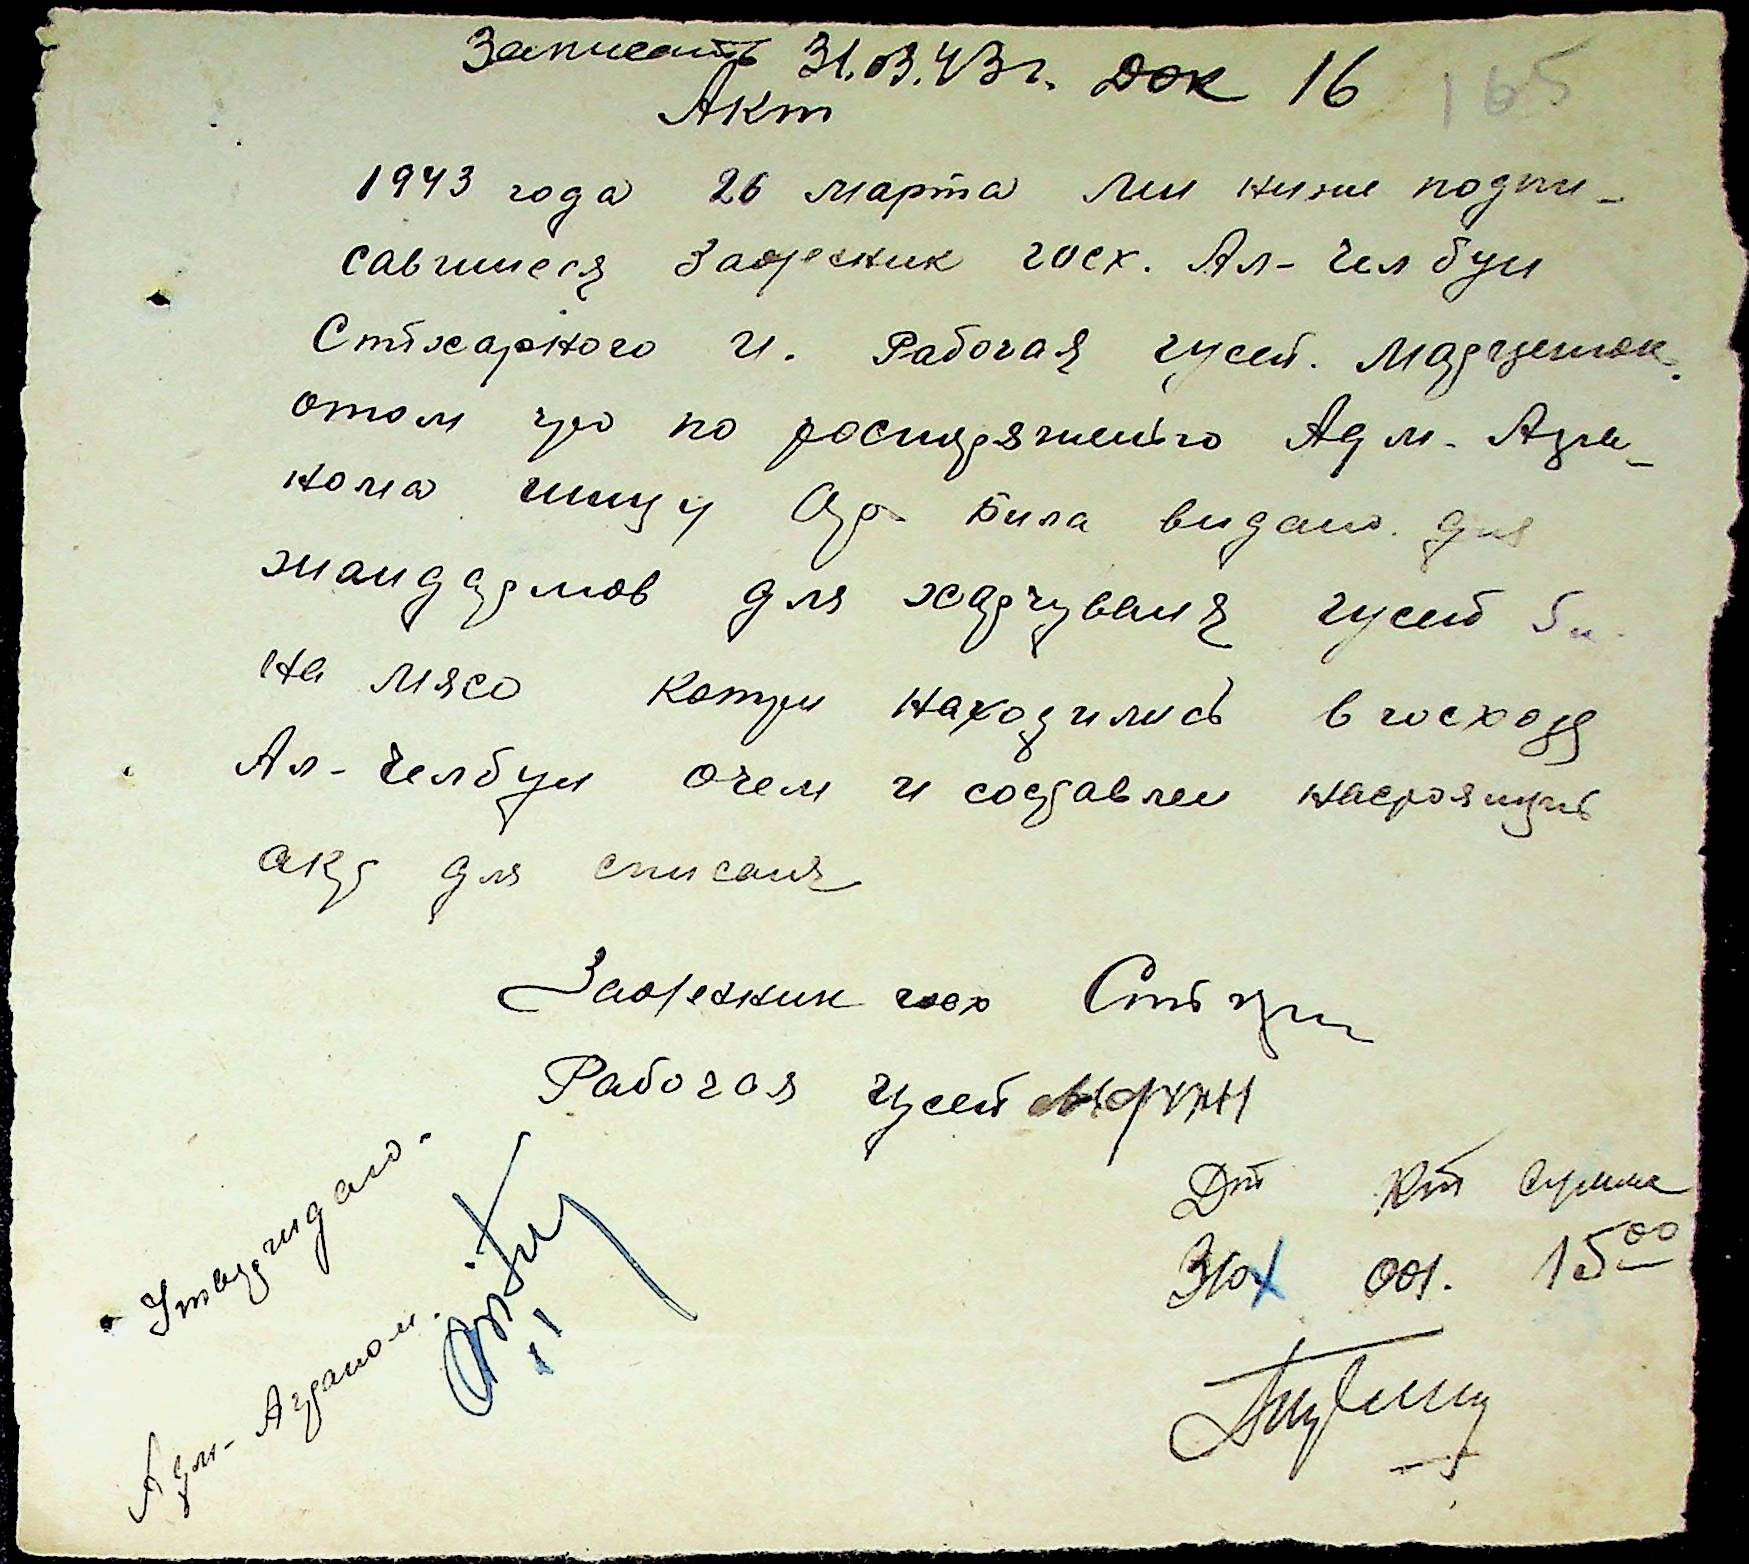 Записать 31.03.43 г. Док 16 165
Акт
1943 года 26 марта Ми ниже подпи-
савшиеся Заережник госх. Ал-Челбуи
Стіхарного И. Рабочая гусей.
отом що по роспоряжению Адм. Агро-
нома била видано для
жандармов для харчування гусей 5
на мясо котри находились в госходя
Ал-Челбуи очем и составлен настоящий
акт для списаня
Заережник госх
Рабочая гусей
Утверждаю.
Адм- Агроном.
Дт Кт Сумма
001. 15 00